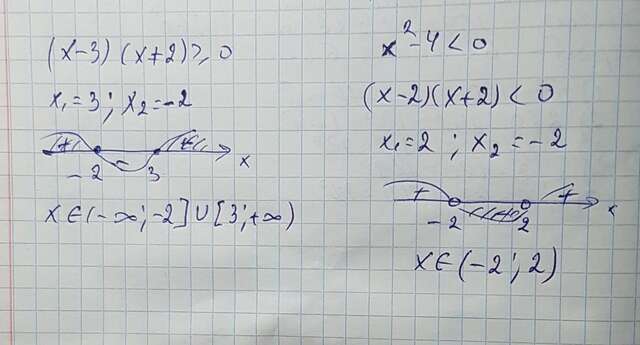 (x-3)(x+2)≥0
x₁=3; x₂=-2
+ - +
-2 3 x
x∈(-∞;-2]∪[3;+∞)
x²-4<0
(x-2)(x+2)<0
x₁=2; x₂=-2
+ - +
-2 2 x
x∈(-2;2)